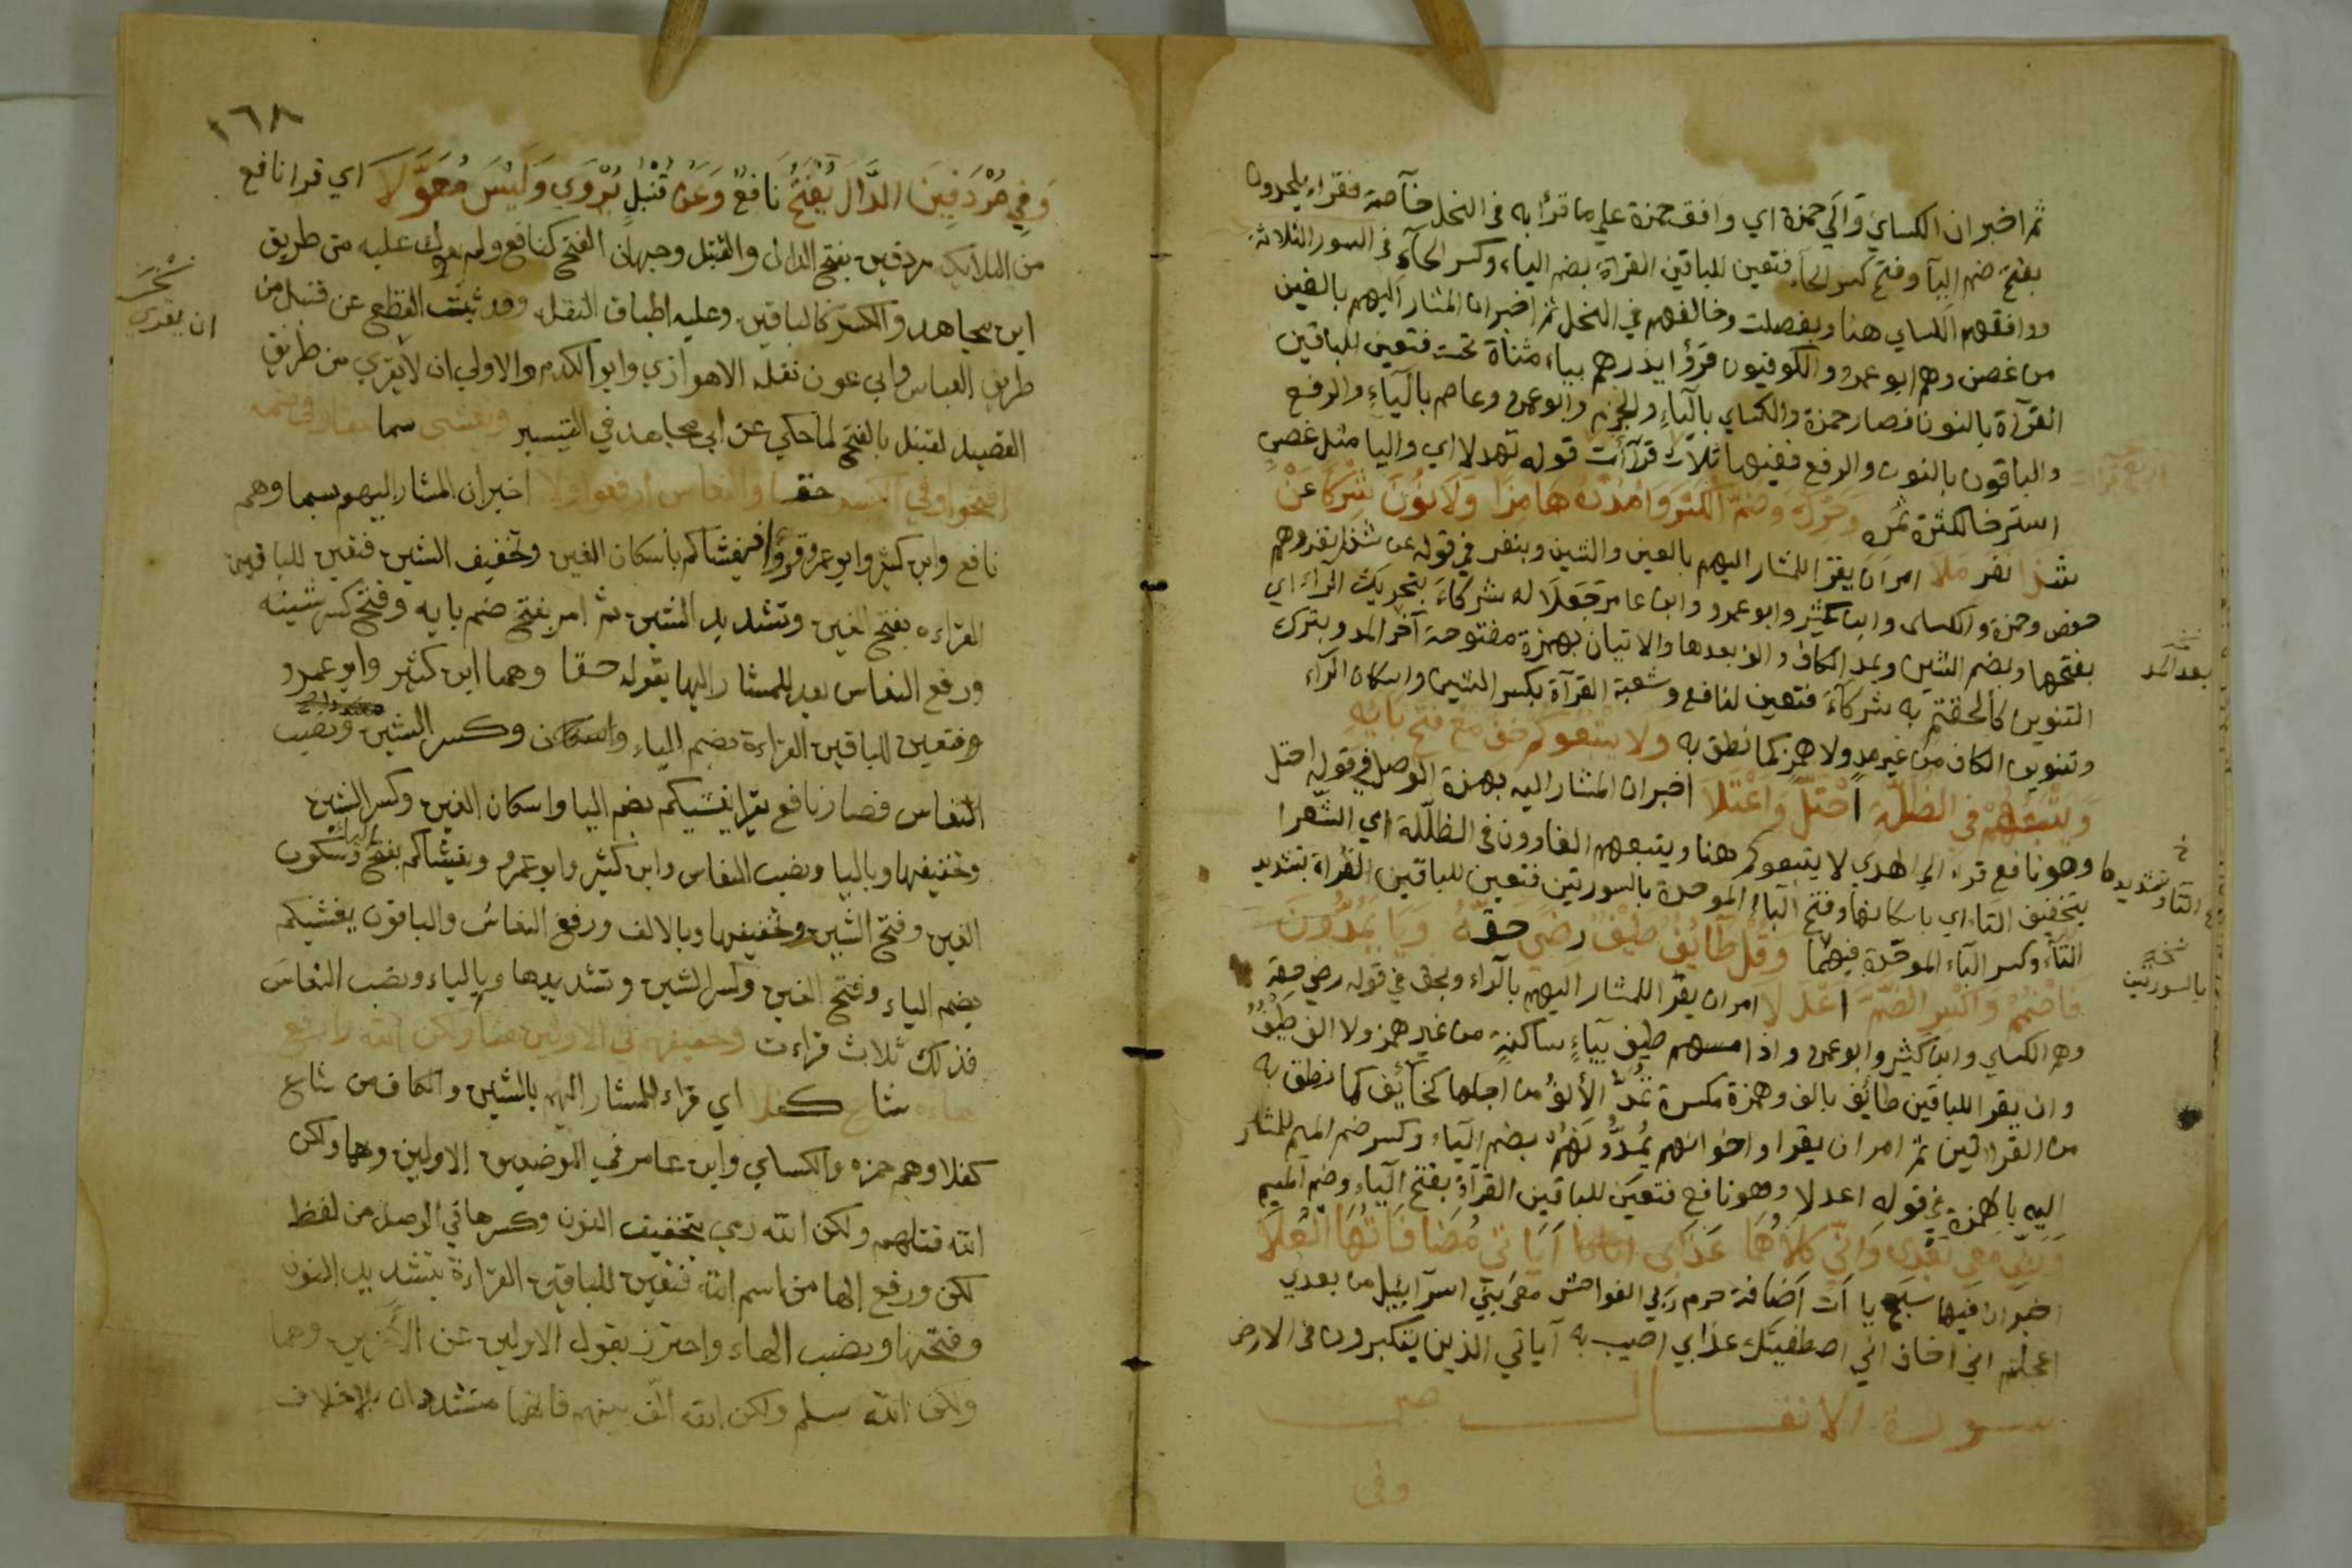 ثم اخبر ان الكسايي والي حمزة اي وافق حمزة علي ما قرأ به في النحل خآصة فقراء يلحدون
بفتح ضم اليآ وفتح كسر الحآء فتعين للباقين القرآة بضم الياء وكسر الحآء في السور الثلاثة
ووافقهم الكساي هنا وبفصلت وخالفهم في النحل ثم اخبر ان المشار اليهم بالغين
من غصن وهم ابو عمرو والكوفيون قرؤا يذرهم بياء مثناة تحت فتعين للباقين
القرآة بالنون فصار حمزة والكساي بالياء والجزم وابو عمرو وعاصم بالياء والرفع
والباقون بالنون والرفع ففيها ثلاث قرآأت قوله تهدلا اي واليا مثل غصن
استرخا لكثرة ثمره وَحَرِّك وَضُمَّ الكَسْرَ وَامْدُدْهُ هَامِزًا وَلَا نُونَ شِرْكًا عَنْ
شذا نفر ملا امر ان يقرا للمشار اليهم بالعين والشين وبنفر في قوله عن شذا نفر وهم
حفص وحمزة والكساى وابن كثير وابو عمرو وابن عامر جَعَلَا له شركآءَ بتحريك الرآء اي
بفتحها وبضم الشين وبمد الكاف والف بعدها والاتيان بهمزة مفتوحة آخر المد وبترك
التنوين كألحقتم به شركآءَ فتعين لنافع وشعبة القرآة بكسر الشين واسكان الرآء
وتنوين الكاف من غير مدٍ ولا همزٍ كما نطق به وَلَا يَتْبَعُوكُمْ خَفَّ مَعْ فَتْحِ بَائِهِ
وَيَتْبَعُهُمْ في الظُلَّةِ احْتَلَّ وَاعْتَلَا اخبر ان المشار اليه بهمزة الوصل في قوله احتل
وهو نافع قرآ الي الهدي لا يتبعوكم هنا ويتبعهم الغاوون في الظلّلة اي الشعرا
بتخفيف التاء اي باسكانها وفتح البآء الموحدة بالسورتين فتعين للباقين القرأة بتشديد
التآء وكسر البآء الموحّدة فيهما وَقُلْ طَآئِفٌ طَيْفٌ رِضَى حَقُّهُ وَيَا يَمُدُّونَ
فَاضْمُمْ وَاكْسِرِ الضَّمَّ اعْدَلَا امر ان يقرا للمشار اليهم بالرآء وبحق في قوله رضي حقه
وهم الكساي وابن كثير وابو عمرو واذا مسهم طيف بيآءٍ ساكنةٍ من غير همز ولا الف طيفٌ
وان يقر اللباقين طائف بالف وهمزة مكسرة تُمدُّ الألفُ من اجلها كخآئف كما نطق به
من القرآتين ثم امر ان يقرا واخوانهم يُمدُّونَهُم بضم اليآء وكسر ضم الميم للمشار
اليه بالهمزة في قوله اعدلا وهو نافع فتعين للباقين القرآة بفتح اليآء وضم الميم
وَرَبِّي مَعِي بَعْدِي وَإِنِّي كِلَاهُمَا عَذَابِي آيَاتِي مُضَافَاتُهَا الْعُلَا
اخبر ان فيها سبع يا آت اضافة حرم ربي الفواحش معي بني اسرآئيل من بعدي
اعجلتم اني اخاف اني اصطفيتك عذابي اصيب به آياتي الذين يتكبرون في الارض
سورة الانفال
وفي
بعد المد
التآ وتشديدها
نسخه
بالسورتين
١٦٨
وَفِي مُرْدِفِينَ الدَّالَ يَفْتَحُ نَافِعٌ وَعَنْ قُنْبُلٍ يُرْوَى وَلَيْسَ مُعَوَّلَا اي قرا نافع
من الملائكة مردفين بفتح الدال ولقنبل وجهان الفتح كنافع ولم يعول عليه من طريق
ابن مجاهد والكسر كالباقين وعليه اطباق النقلة وقد ثبت القطع عن قنبل من
طريق العباس وابي عون نقله الاهوازي وابو الكدم والاولي ان لا يقري من طريق
القصيد لقنبل بالفتح لما حكي عن ابن مجاهد في التيسير ويغشى سما خفا وفي ضمه
افتحوا وفي الكسر حقا والنعاس ارفعوا ولا اخبر ان المشار اليهم بسما وهم
نافع وابن كثير وابو عمرو قرؤا اذ يغشاكم باسكان الغين وتخفيف الشين فتعين للباقين
القراءه بفتح الغين وتشديد الشين ثم امر بفتح ضم يايه وفتح كسر شينه
ورفع النعاس بعد للمشار اليها بقوله حقا وهما ابن كثير وابو عمرو
وفتعين للباقين القراءة بضم الياء واسكان وكسر الشين ونصب
النعاس فصار نافع يقرا يغشيكم بضم اليا واسكان الغين وكسر الشين
وتخفيفها وباليا ونصب النعاس وابن كثير وابو عمرو ويغشاكم بفتح الياء وسكون
الغين وفتح الشين وتخفيفها وبالالف ورفع النعاسُ والباقون يغشيكم
بضم الياء وفتح الغين وكسر الشين وتشديدها وبالياء ونصب النعاسَ
فذلك ثلاث قراءت وتخفيفهم في الاولين هنا ولكن الله وارفع
هاءه شاع كفلا اي قراء للمشار اليهم بالشين والكاف من شاع
كفلا وهم حمزه والكساي وابن عامر في الموضعين الاولين وهما ولكن
الله قتلهم ولكن الله رمي بتخفيف النون وكسرها في الوصل من لفظ
لكن ورفع الها من اسم الله فتعين للباقين القراءة بتشديد النون
وفتحها ونصب الهاء واحترز بقول الاولين عن الاخرين وهما
ولكن الله سلم ولكن الله الّف بينهم فانهما مشددان بلا خلاف
ان يقري